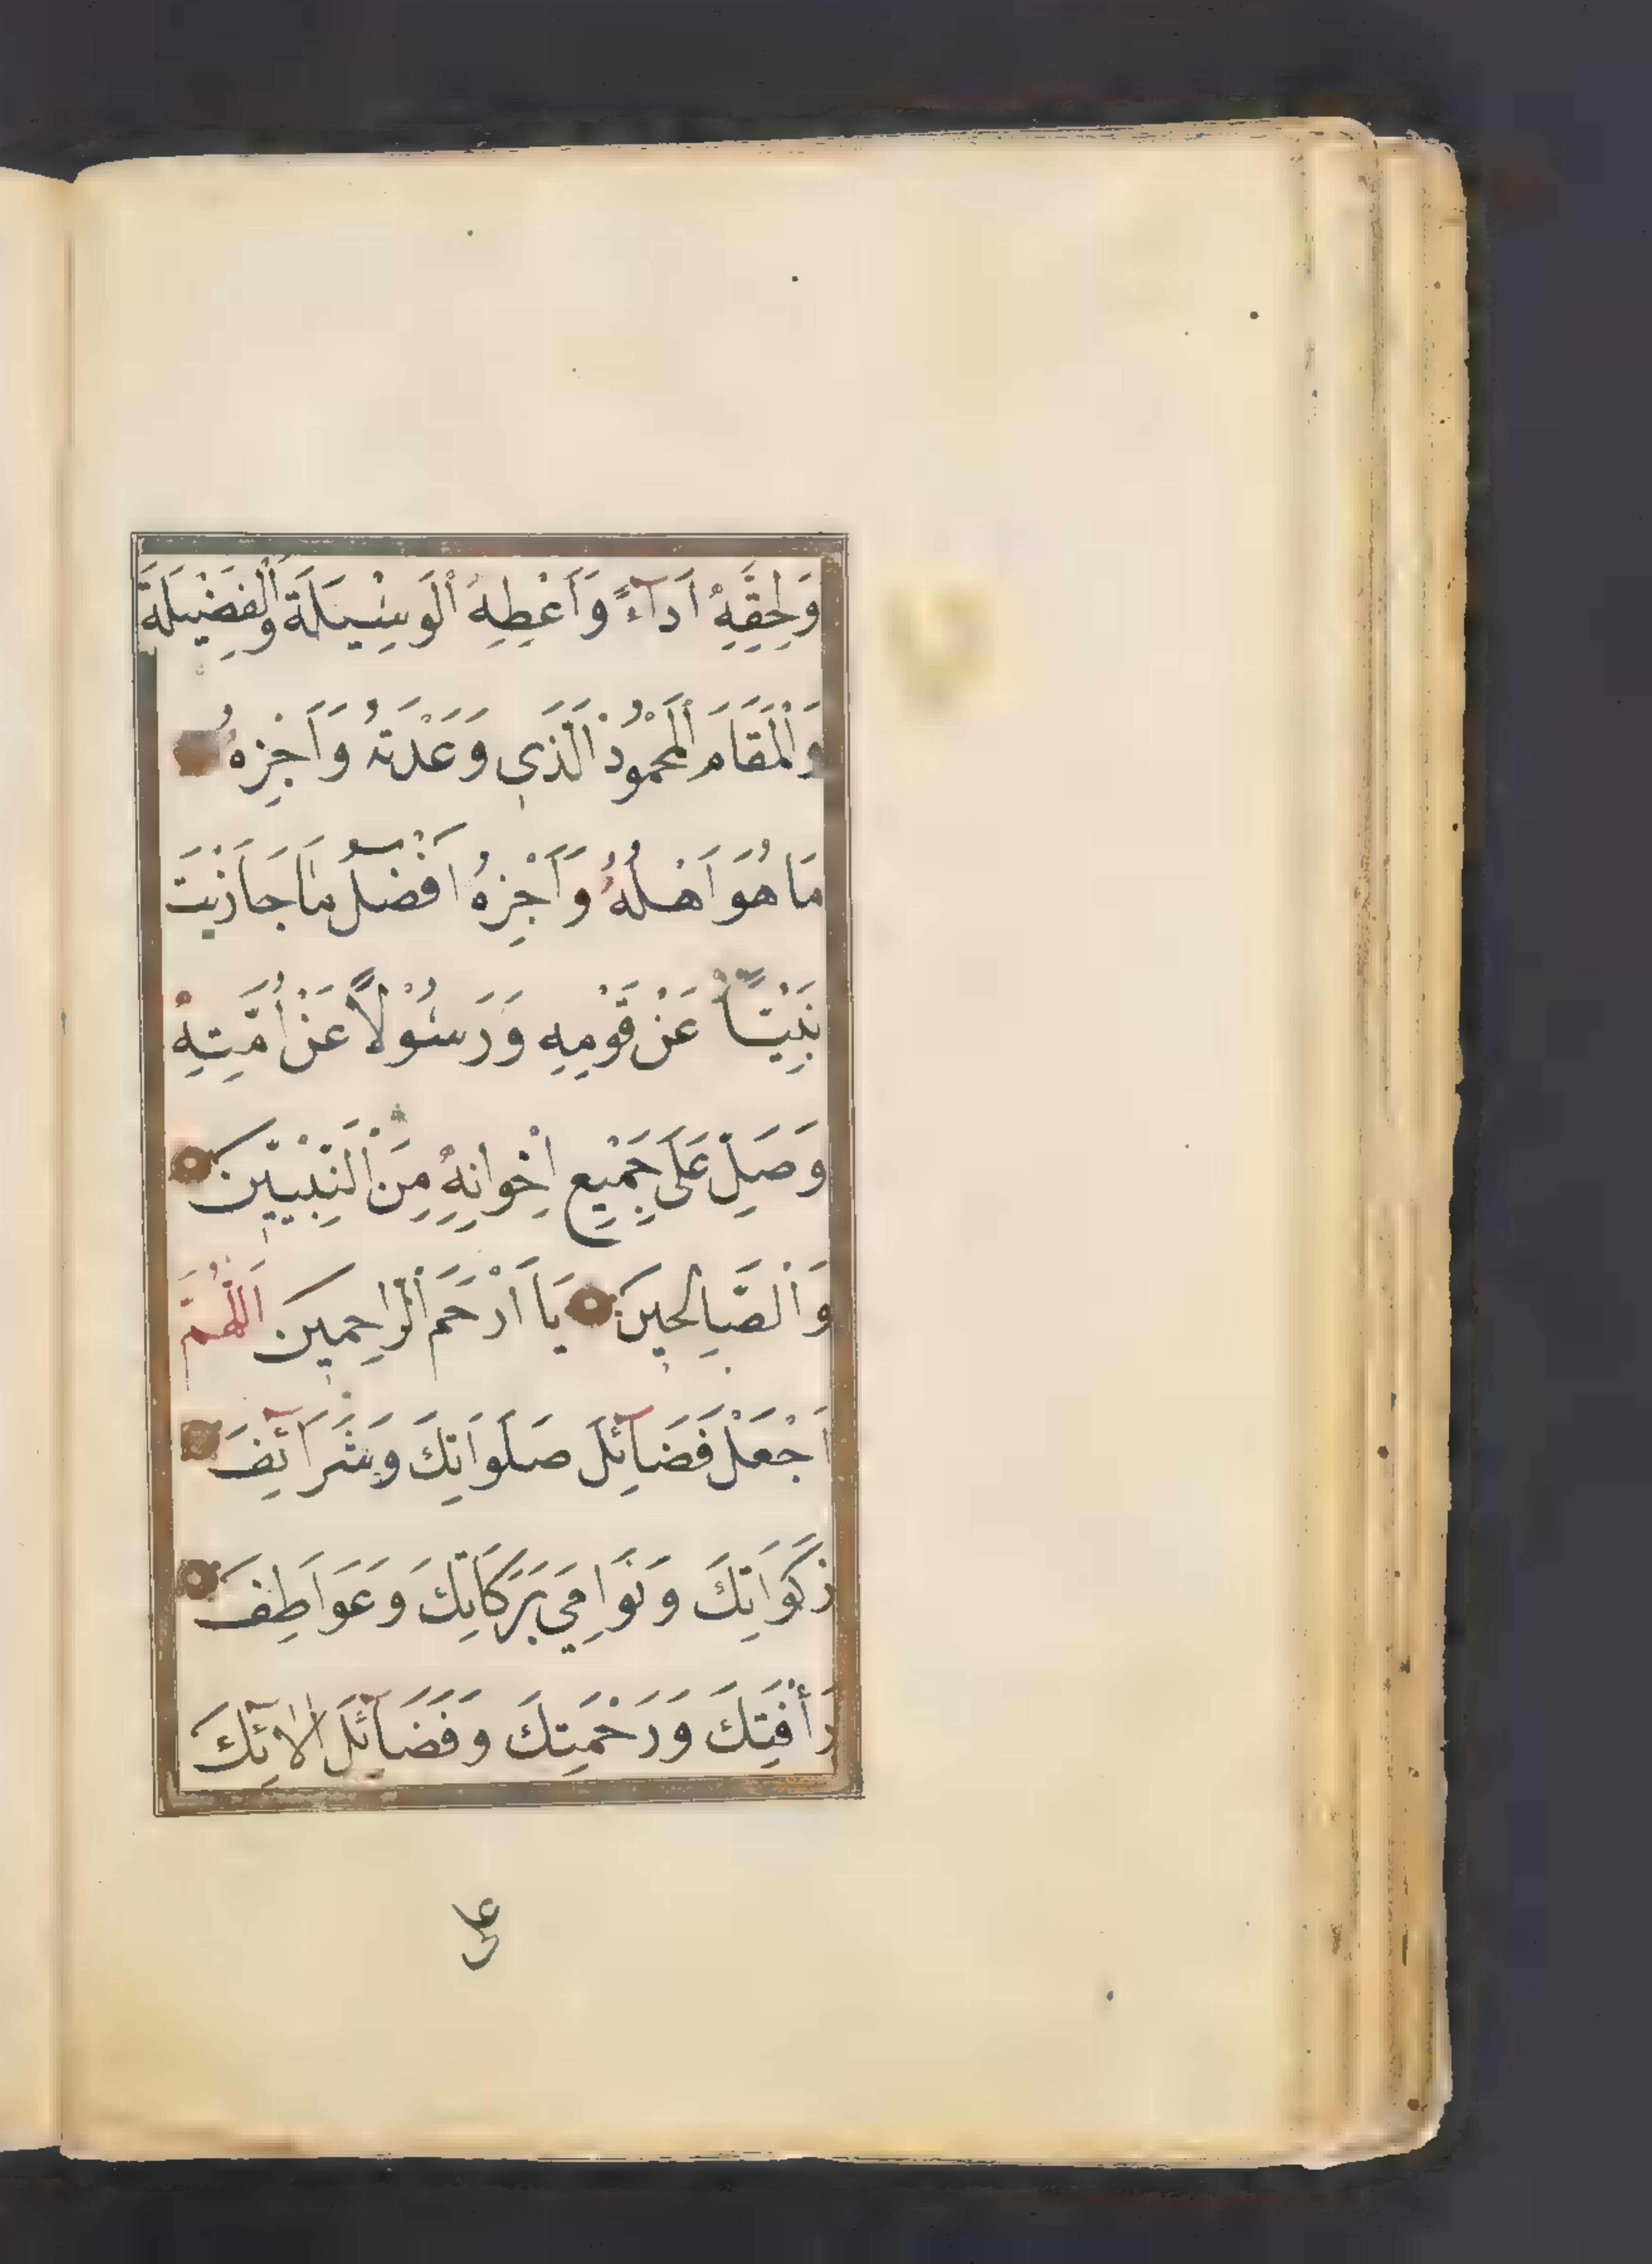 وَلِحَقِّهِ اَدَآءً وَاَعْطِهِ الْوَسِيْلَةَ وَالْفَضِيْلَةَ
وَالْمَقَامَ الْمَحْمُوْدَ الَّذِي وَعَدْتَهُ وَاَجْزِهُ
مَا هُوَ اَهْلُهُ وَاَجْزِهُ اَفْضَلَ مَا جَازَيْتَ
نَبِيًّا عَنْ قَوْمِهِ وَرَسُوْلًا عَنْ اُمَّتِهِ
وَصَلِّ عَلَى جَمِيْعِ اِخْوَانِهِ مِنَ النَّبِيِّينَ
وَالصَّالِحِينَ يَا اَرْحَمَ الرَّاحِمِينَ اَللّٰهُمَّ
اَجْعَلْ فَضَآئِلَ صَلَوَاتِكَ وَشَرَآئِفَ
زَكَوَاتِكَ وَنَوَامِيَ بَرَكَاتِكَ وَعَوَاطِفَ
رَأْفَتِكَ وَرَحْمَتِكَ وَفَضَآئِلَ اٰلآئِكَ
على